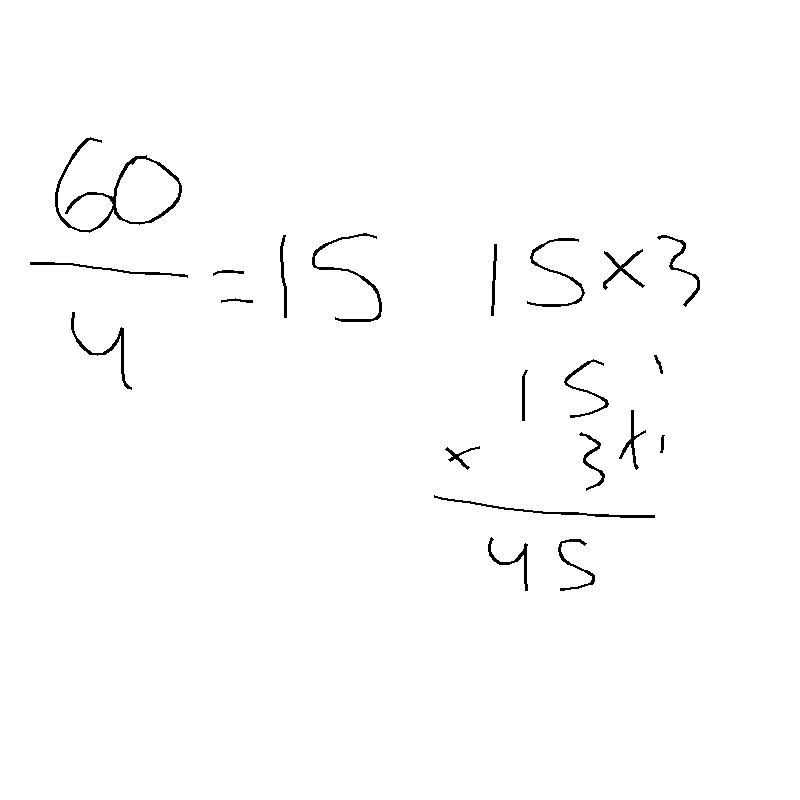 60
4
= 15
15 × 3
15
× 3
45